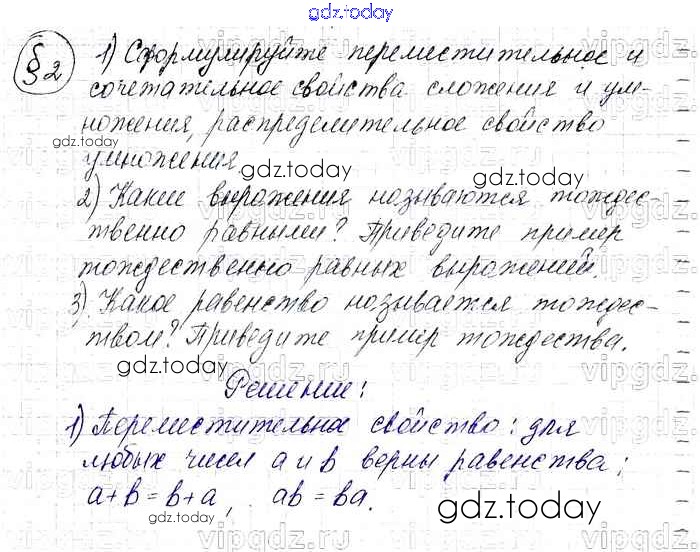 gdz.today
§ 2
1) Сформулируйте переместительное и
сочетательное свойства сложения и ум-
ножения, распределительное свойство
умножения.
gdz.today
gdz.today
2) Какие выражения называются тождес-
твенно равными? Приведите пример
тождественно равных выражений.
gdz.today
3) Какое равенство называется тождес-
твом? Приведите пример тождества.
gdz.today
Решение:
1) Переместительное свойство: для
любых чисел a и b верны равенства:
a+b=b+a, ab=ba.
gdz.today
gdz.today
vipgdz.ru